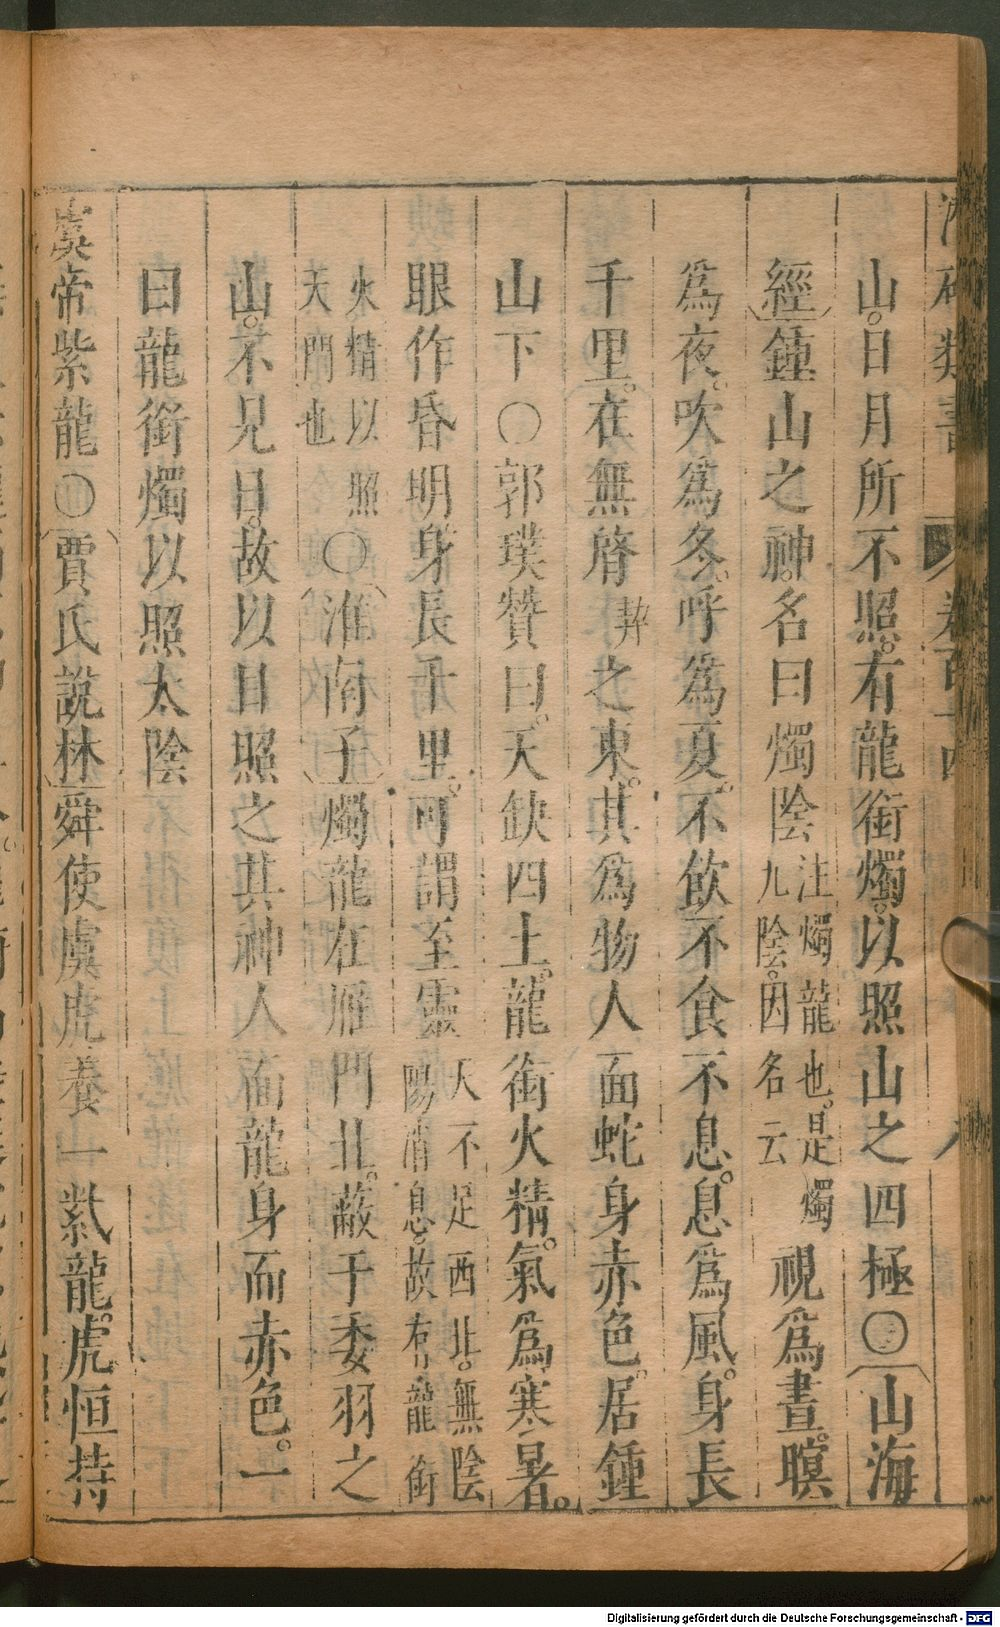 山。日月所不照。有龍銜燭。以照山之四極〇山海
經鍾山之神。名曰燭陰注燭龍也。是燭九陰。因名云視爲晝。瞑
爲夜。吹爲冬。呼爲夏。不飲不食不息。息爲風。身長
千里。在無䏿之東。其爲物人面蛇身赤色。居鍾
山下〇郭璞贊曰。天缺四土。龍銜火精。氣爲寒暑。
眼作昏明身長千里。可謂至靈天不足西北。無陰陽消息。故有龍銜
火精以照天門也〇淮南子燭龍在雁門北。蔽于委羽之
山。不見日。故以目照之其神人面龍身而赤色。一
曰龍銜燭以照太陰
虞帝紫龍〇賈氏說林舜使虞虎養山一紫龍。虎恒持
Digitalisierung gefördert durch die Deutsche Forschungsgemeinschaft - DFG